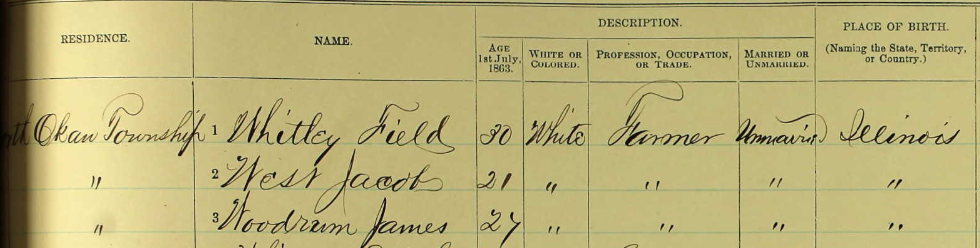 RESIDENCE. NAME. DESCRIPTION. PLACE OF BIRTH.
(Naming the State, Territory, or Country.)
AGE 1st July, 1863. WHITE OR COLORED. PROFESSION, OCCUPATION, OR TRADE. MARRIED OR UNMARRIED.
Okaw Township 1 Whitley Field 30 White Farmer Unmarried Illinois
" 2 West Jacob 21 " " " "
" 3 Woodrum James 27 " " " "